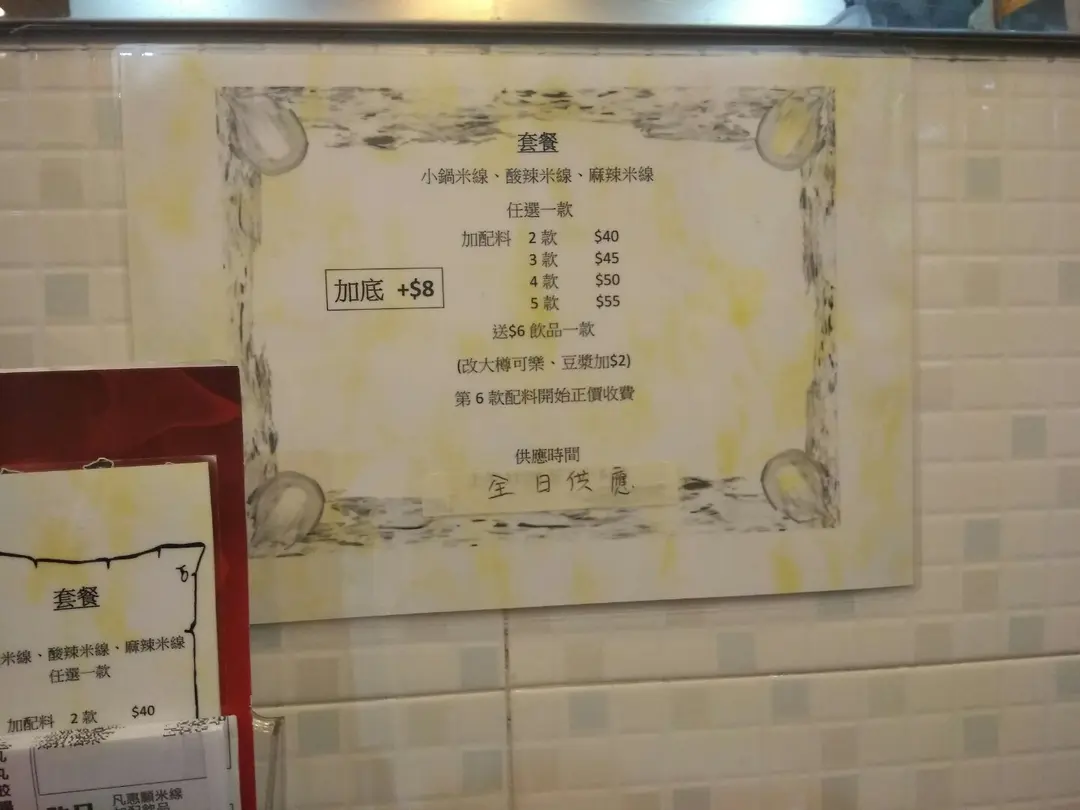 套餐
小鍋米線、酸辣米線、麻辣米線
任選一款
加配料 2 款 $40
3 款 $45
4 款 $50
5 款 $55
加底 +$8
送$6 飲品一款
(改大樽可樂、豆漿加$2)
第 6 款配料開始正價收費
供應時間
全日供應
套餐
米線、酸辣米線、麻辣米線
任選一款
加配料 2 款 $40
凡惠顧米線